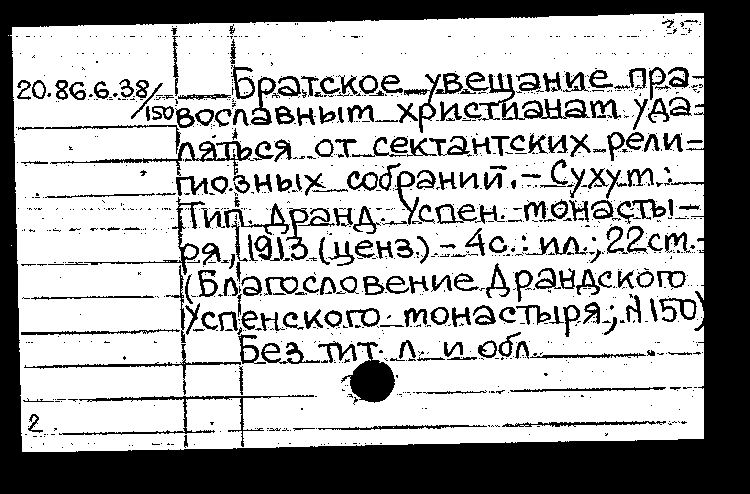 35
20.86.6.38/150
Братское увещание пра-
вославным христианам уда-
ляться от сектантских рели-
гиозных собраний. – Сухум:
Тип. Дранд. Успен. монасты-
ря, 1913 (ценз.) – 4с.: ил.; 22см.-
(Благословение Драндского
Успенского монастыря; №150)
Без тит. л. и обл.
2